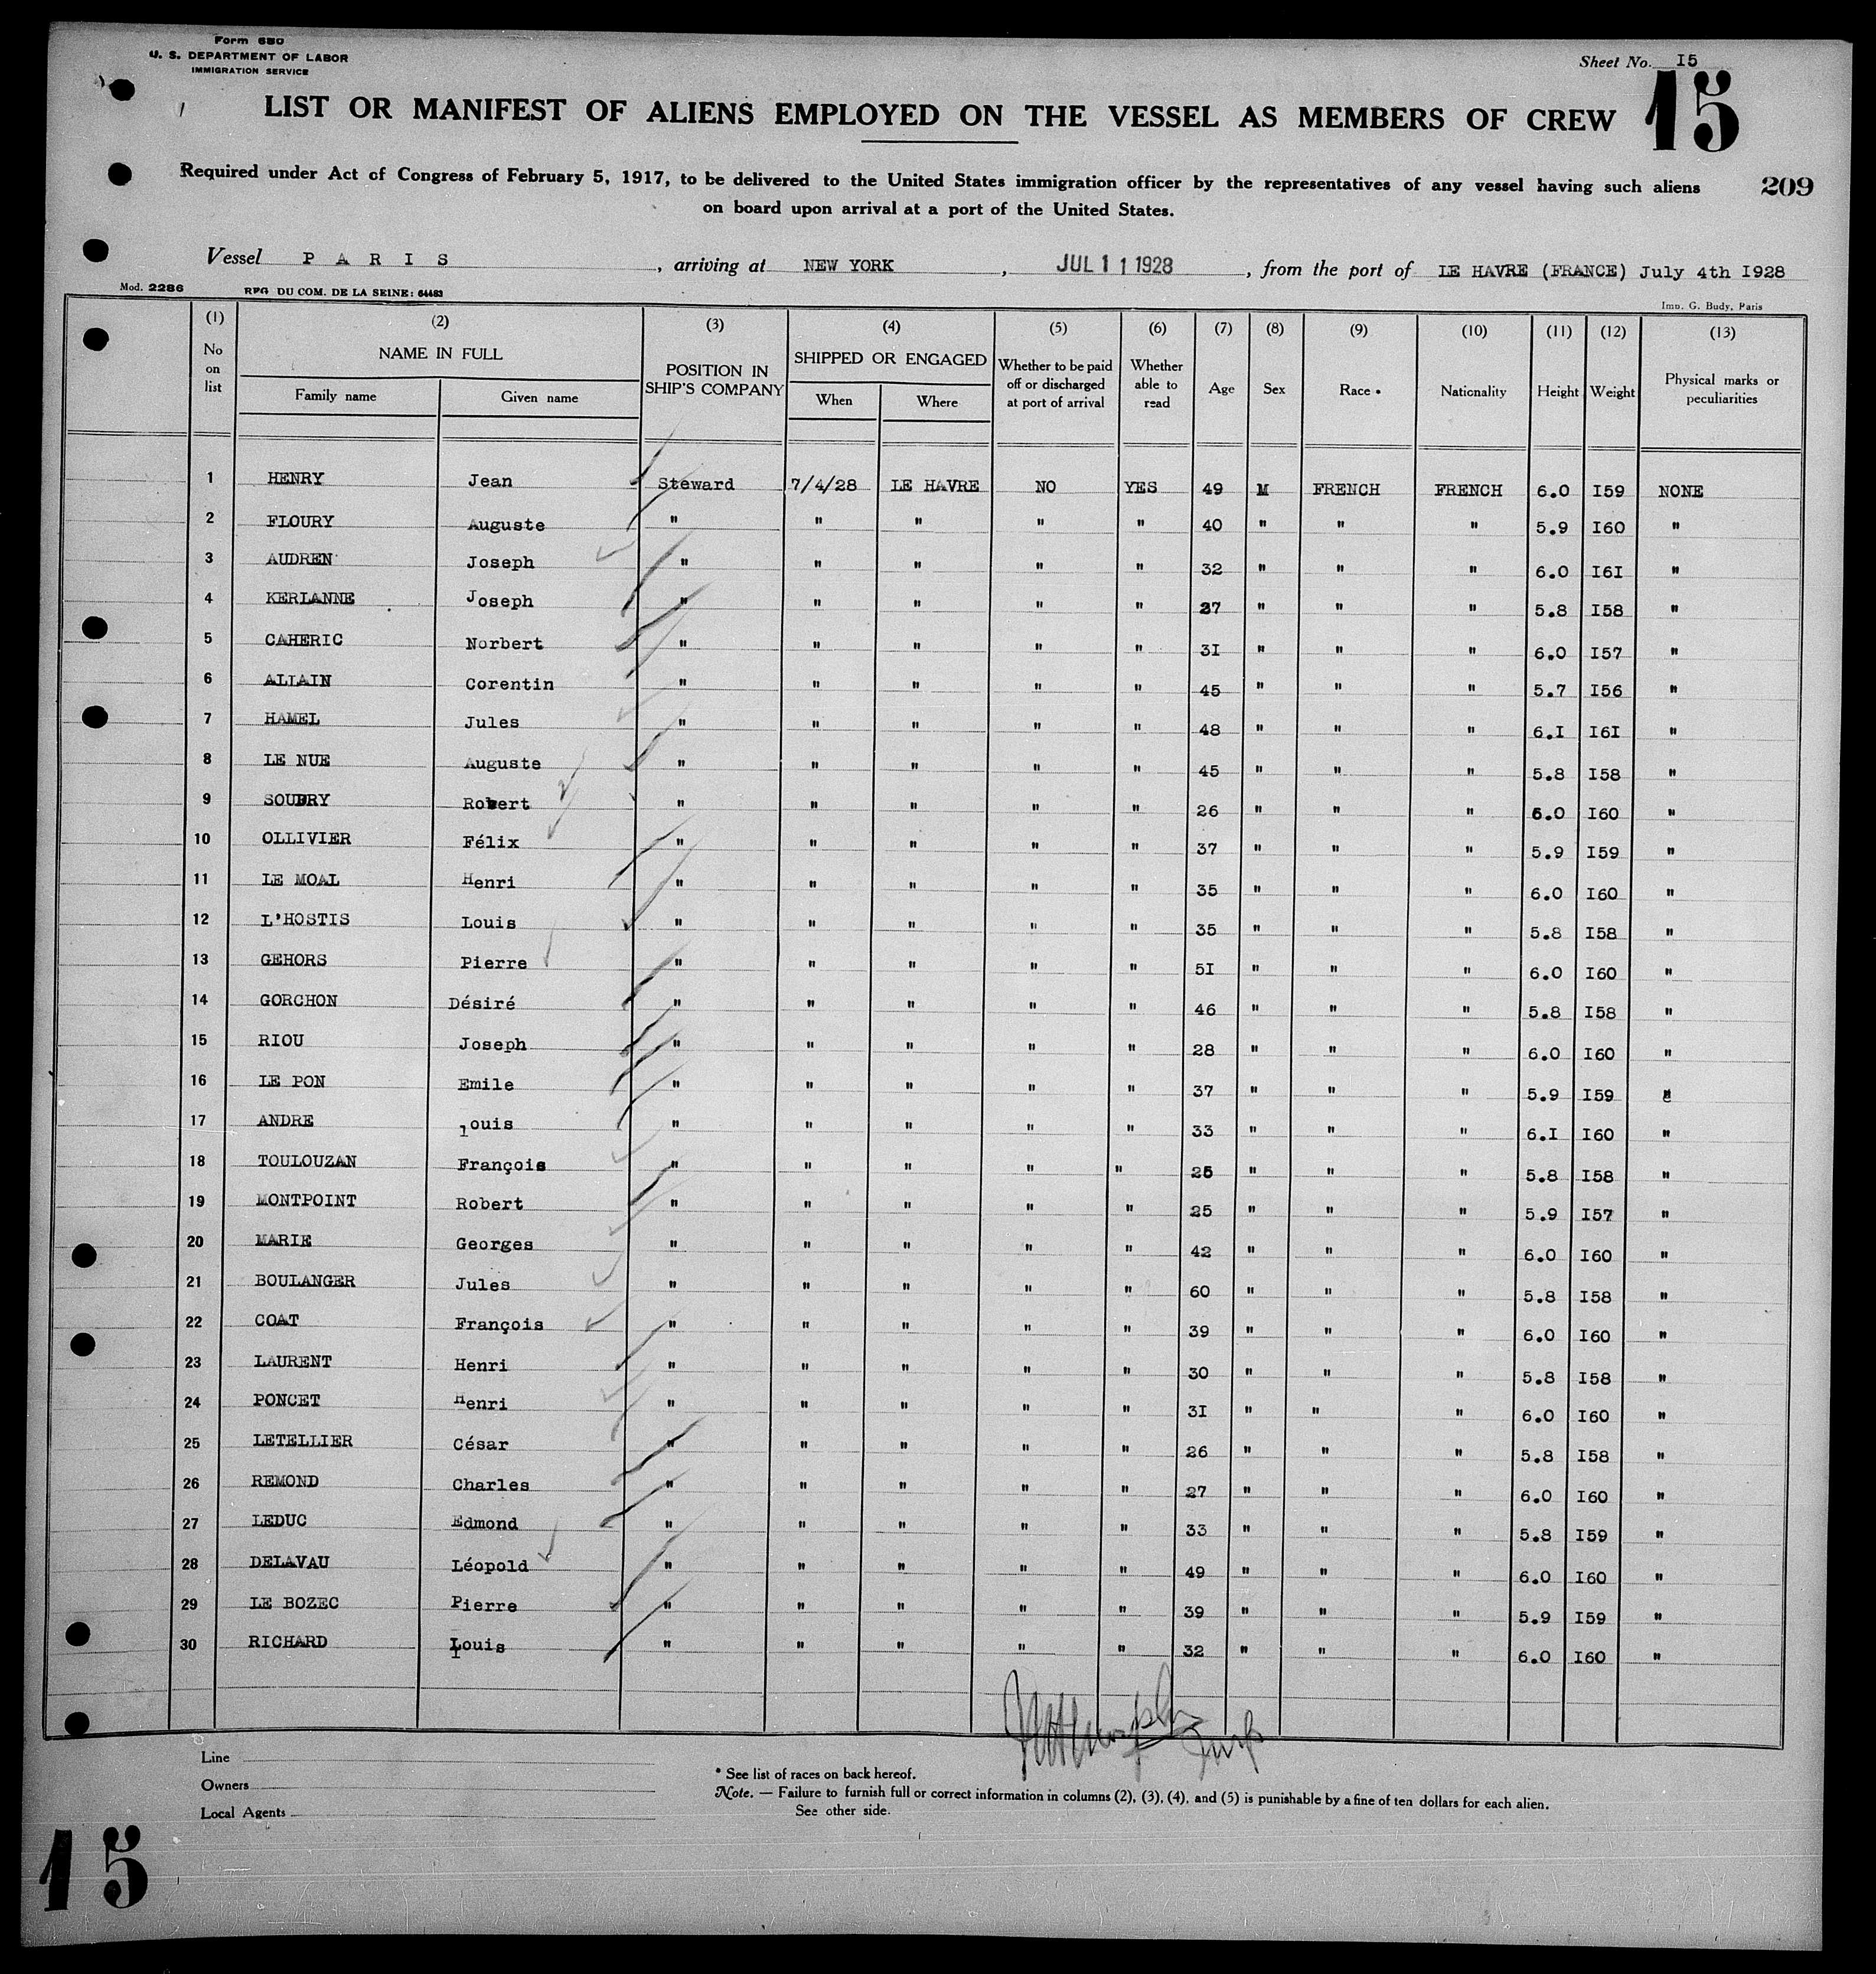 Form 680
U. S. DEPARTMENT OF LABOR
IMMIGRATION SERVICE
Sheet No. I5
15
LIST OR MANIFEST OF ALIENS EMPLOYED ON THE VESSEL AS MEMBERS OF CREW
Required under Act of Congress of February 5, 1917, to be delivered to the United States immigration officer by the representatives of any vessel having such aliens
on board upon arrival at a port of the United States.
209
Vessel P A R I S, arriving at NEW YORK, JUL 1 1 1928, from the port of LE HAVRE (FRANCE) July 4th I928
Mod. 2286 RPG DU COM. DE LA SEINE: 64483 Imp. G. Budy, Paris
(1) (2) (3) (4) (5) (6) (7) (8) (9) (10) (11) (12) (13)
No on list NAME IN FULL Family name Given name POSITION IN SHIP'S COMPANY SHIPPED OR ENGAGED When Where Whether to be paid off or discharged at port of arrival Whether able to read Age Sex Race • Nationality Height Weight Physical marks or peculiarities
1 HENRY Jean Steward 7/4/28 LE HAVRE NO YES 49 M FRENCH FRENCH 6.0 I59 NONE
2 FLOURY Auguste " " " " " 40 " " " 5.9 I60 "
3 AUDREN Joseph " " " " " 32 " " " 6.0 I6I "
4 KERLANNE Joseph " " " " " 37 " " " 5.8 I58 "
5 CAHERIC Norbert " " " " " 3I " " " 6.0 I57 "
6 ALLAIN Corentin " " " " " 45 " " " 5.7 I56 "
7 HAMEL Jules " " " " " 48 " " " 6.I I6I "
8 LE NUE Auguste " " " " " 45 " " " 5.8 I58 "
9 SOUDRY Robert " " " " " 26 " " " 6.0 I60 "
10 OLLIVIER Félix " " " " " 37 " " " 5.9 I59 "
11 LE MOAL Henri " " " " " 35 " " " 6.0 I60 "
12 L'HOSTIS Louis " " " " " 35 " " " 5.8 I58 "
13 GEHORS Pierre " " " " " 5I " " " 6.0 I60 "
14 GORCHON Désiré " " " " " 46 " " " 5.8 I58 "
15 RIOU Joseph " " " " " 28 " " " 6.0 I60 "
16 LE PON Emile " " " " " 37 " " " 5.9 I59 "
17 ANDRE louis " " " " " 33 " " " 6.I I60 "
18 TOULOUZAN François " " " " " 25 " " " 5.8 I58 "
19 MONTPOINT Robert " " " " " 25 " " " 5.9 I57 "
20 MARIE Georges " " " " " 42 " " " 6.0 I60 "
21 BOULANGER Jules " " " " " 60 " " " 5.8 I58 "
22 COAT François " " " " " 39 " " " 6.0 I60 "
23 LAURENT Henri " " " " " 30 " " " 5.8 I58 "
24 PONCET Henri " " " " " 3I " " " 6.0 I60 "
25 LETELLIER César " " " " " 26 " " " 5.8 I58 "
26 REMOND Charles " " " " " 27 " " " 6.0 I60 "
27 LEDUC Edmond " " " " " 33 " " " 5.8 I59 "
28 DELAVAU Léopold " " " " " 49 " " " 6.0 I60 "
29 LE BOZEC Pierre " " " " " 39 " " " 5.9 I59 "
30 RICHARD Louis " " " " " 32 " " " 6.0 I60 "
Line
Owners
Local Agents
* See list of races on back hereof.
Note. — Failure to furnish full or correct information in columns (2), (3), (4), and (5) is punishable by a fine of ten dollars for each alien.
See other side.
15